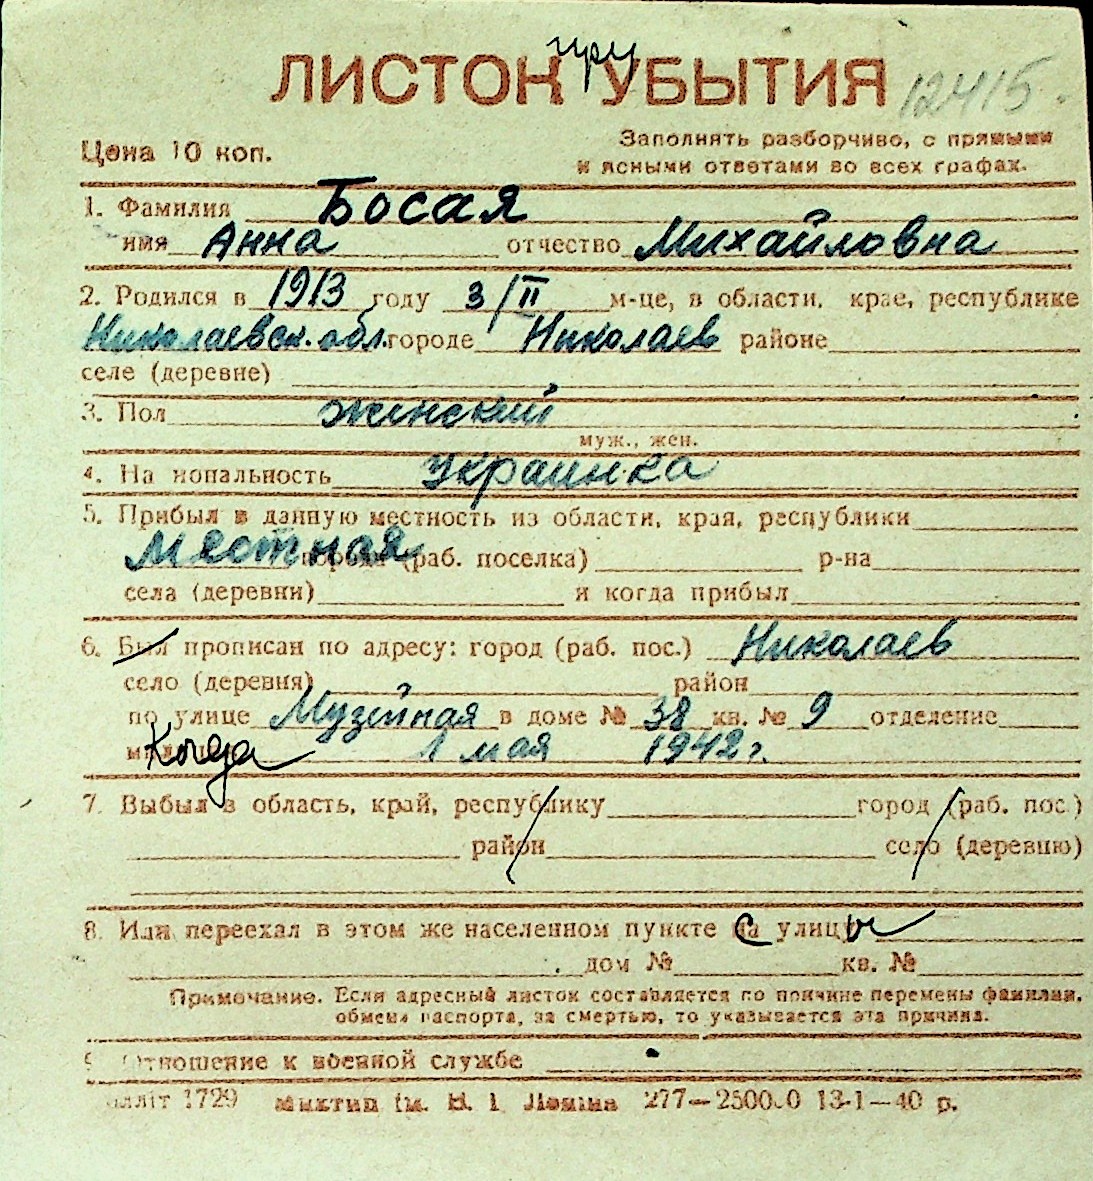 при
ЛИСТОК УБЫТИЯ 12415
Цена 10 коп.
Заполнять разборчиво, с прямыми
и ясными ответами во всех графах.
1. Фамилия Босая
имя Анна отчество Михайловна
2. Родился в 1913 году 3/II м-це, в области, крае, республике
Николаевск. обл. городе Николаев районе
селе (деревне)
3. Пол женский
муж., жен.
4. Национальность украинка
5. Прибыл в данную местность из области, края, республики
местная города (раб. поселка) р-на
села (деревни) и когда прибыл
6. Был прописан по адресу: город (раб. пос.) Николаев
село (деревня) район
по улице Музейная в доме № 38 кв. № 9 отделение
Когда 1 мая 1942 г.
7. Выбыл в область, край, республику город (раб. пос.)
район село (деревню)
8. Или переехал в этом же населенном пункте с улицы
дом № кв. №
Примечание. Если адресный листок составляется по причине перемены фамилии,
обмена паспорта, за смертью, то указывается эта причина.
9. Отношение к военной службе
1729 277—2500 0 13-1—40 р.